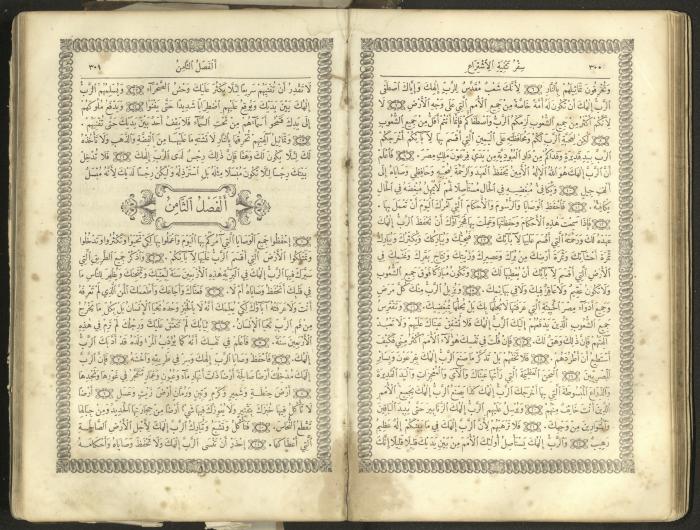 سِفْرُ تَثْنِيَةِ الِاشْتِرَاعِ ٣٠٠
وتحرقون تماثيلهم بالنار لأنك شعب مقدس للرب إلهك وإياك اصطفى
الرب إلهك أن تكون له أمة خاصة من جميع الأمم التي على وجه الأرض لا
لأنكم أكثر من جميع الشعوب لزمكم الرب واصطفاكم فإنما أنتم أقل من جميع الشعوب
لكن لمحبة الرب لكم ومحافظته على اليمين التي أقسم بها لآبائكم أخرجكم
الرب بيد قديرة وفداكم من دار العبودية من يدي فرعون ملك مصر فاعلم
أن الرب إلهك هو الله الإله الأمين يحفظ العهد والرحمة لمحبيه وحافظي وصاياه إلى
ألف جيل ويكافئ مبغضيه في الحال مستأصلا لهم لا يمهل مبغضه في الحال
يكافئه فاحفظ الوصايا والرسوم والأحكام التي آمرك اليوم أن تعمل بها
فإذا سمعت هذه الأحكام وحفظتها وعملت بها فجزاؤك أنه يحفظ الرب إلهك
عهده لك ورحمته التي أقسم عليها لآبائك فيحبك ويباركك ويكثرك ويبارك
ثمرة أحشائك وثمرة أرضك من برك وعصيرك وزيتك ونتاج بقرك وغنمك في
الأرض التي أقسم لآبائك أن يعطيها لك وتكون مباركا فوق جميع الشعوب
ولا يكون عقيم ولا عاقر فيك ولا في بهائمك ويزيل الرب عنك كل مرض
وجميع أدواء مصر الخبيثة التي عرفتها لا يحلها بك بل يحلها بمبغضيك وتفترس
جميع الشعوب الذين يدفعهم إليك الرب إلهك فلا تشفق عيناك عليهم ولا تعبد
آلهتهم فإن ذلك وهق لك فإن قلت في نفسك هؤلاء الأمم أكثر مني فكيف
أستطيع أن أطردهم فلا تخفهم بل تذكر ما صنع الرب إلهك بفرعون وسائر
المصريين المحن العظيمة التي رأتها عيناك والآيات والمعجزات واليد القديرة
والذراع المبسوطة التي بها أخرجك الرب إلهك كذا يصنع الرب إلهك بجميع الأمم
الذين أنت خائف منهم ويرسل عليهم الرب إلهك الزنابير حتى يبيد الباقين
والمتوارين من وجهك فلا ترهبهم لأن الرب إلهك في ما بينكم إله عظيم
رهيب والرب إلهك يستأصل أولئك الأمم من بين يديك قليلا قليلا إنك
الفصل الثامن ٣٠١
لا تقدر أن تفنيهم سريعا لئلا يكثر عليك وحش الصحراء ويسلمهم الرب
إلهك بين يديك ويوقع عليهم اضطرابا شديدا حتى يفنوا ويدفع ملوكهم
إلى يدك فتمحو أسماءهم من تحت السماء فلا يقف أحد بين يديك حتى تفنيهم
وتماثيل آلهتهم تحرقها بالنار لا تشته ما عليها من الفضة والذهب ولا تأخذه
لك لئلا يكون لك وهقا فإن ذلك رجس لدى الرب إلهك فلا تدخل
بيتك رجسا لئلا تكون مبسلا مثله بل استرذله وليكن رجسا لديك لأنه مبسل
الفصل الثامن
احفظوا جميع الوصايا التي آمركم بها اليوم واعملوا بها لكي تحيوا وتكثروا وتدخلوا
وتمتلكوا الأرض التي أقسم الرب عليها لآبائكم واذكر جميع الطريق التي
سيرك فيها الرب إلهك في البرية هذه الأربعين سنة ليعنيك ويمتحنك ويظهر للناس ما
في قلبك أتحفظ وصاياه أم لا فعناك وأجاعك وأطعمك المن الذي لم تعرفه
أنت ولا عرفه آباؤك لكي يعلمك أنه لا بالخبز وحده يحيا الإنسان بل بكل ما يخرج
من فم الرب يحيا الإنسان ثيابك لم تخلق عليك ورجلك لم ترم في هذه
الأربعين سنة فاعلم في نفسك أنه كما يؤدب المرء ولده قد أدبك الرب
إلهك فاحفظ وصايا الرب إلهك وسر في طرقه واتقه فإن الرب
إلهك مدخلك أرضا صالحة أرضا ذات أنهار ماء وعيون وغمار تتفجر في غورها ونجدها
أرض حنطة وشعير وكرم وتين ورمان أرض زيت وعسل أرضا
لا تأكل فيها خبزك بتقتير ولا يعوزك فيها شيء أرضا من حجارتها الحديد ومن جبالها
تقطع النحاس فتأكل وتشبع وتبارك الرب إلهك لأجل الأرض الصالحة
التي أعطاكها احذر أن تنسى الرب إلهك ولا تحفظ وصاياه وأحكامه